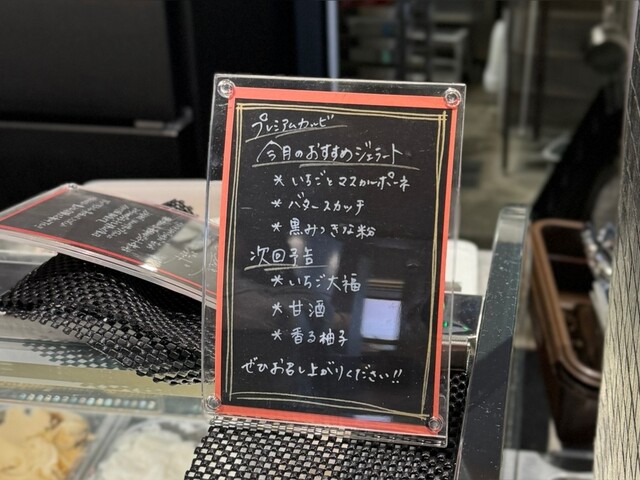 プレミアムカルビ
今月のおすすめジェラート
* いちごとマスカルポーネ
* バタースカッチ
* 黒みつきな粉
次回予告
* いちご大福
* 甘酒
* 香る柚子
ぜひお召し上がりください!!